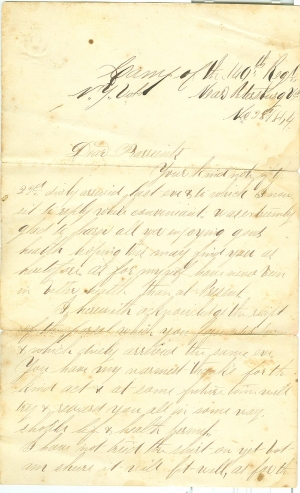 Camp of the 140th Regt
N.Y. Vol Near Petersburg Va
1864
Dear Parents
Your kind note of
29th duly arrived last eve, to which I now
sit to reply while convenient. was extremely
glad to learn all were enjoying good
health, hoping this may find you all
as for myself have never been
in better health than at Present.
I herewith acknowledge the receipt
of the parcel which you
& which duly arrived the same eve
You have my warmest thanks for the
kind act & at some future time will
try & reward you all for some way
should life & health permit
I have not tried the shirt on yet but
am shure it will fit well, as for the